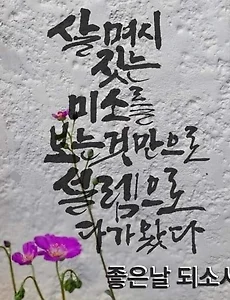 살며시
짓는
미소를
보는것만으로
설렘으로
다가왔다
좋은날 되소서